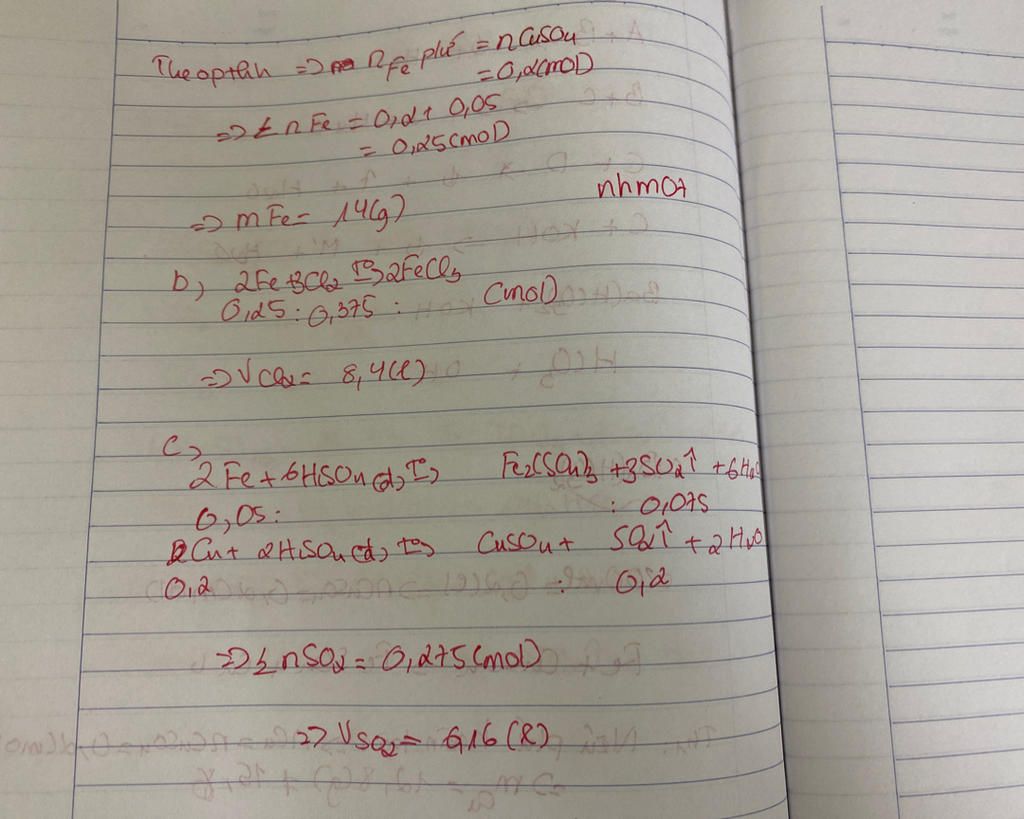 Theo ptph => n Fe phứ = nCuSO4
= 0,2(mol)
=> Σ nFe = 0,2 + 0,05
= 0,25(mol)
=> mFe = 14(g)
nhmOt
b, 2Fe + 3Cl2 t°→ 2FeCl3
0,25 : 0,375 : (mol)
=> VCl2 = 8,4(l)
c,
2Fe + 6H2SO4(đ) t°→ Fe2(SO4)3 + 3SO2↑ + 6H2O
0,05 : : 0,075
Cu + 2H2SO4(đ) t°→ CuSO4 + SO2↑ + 2H2O
0,2 : 0,2
=> Σ nSO2 = 0,275(mol)
=> VSO2 = 6,16(l)